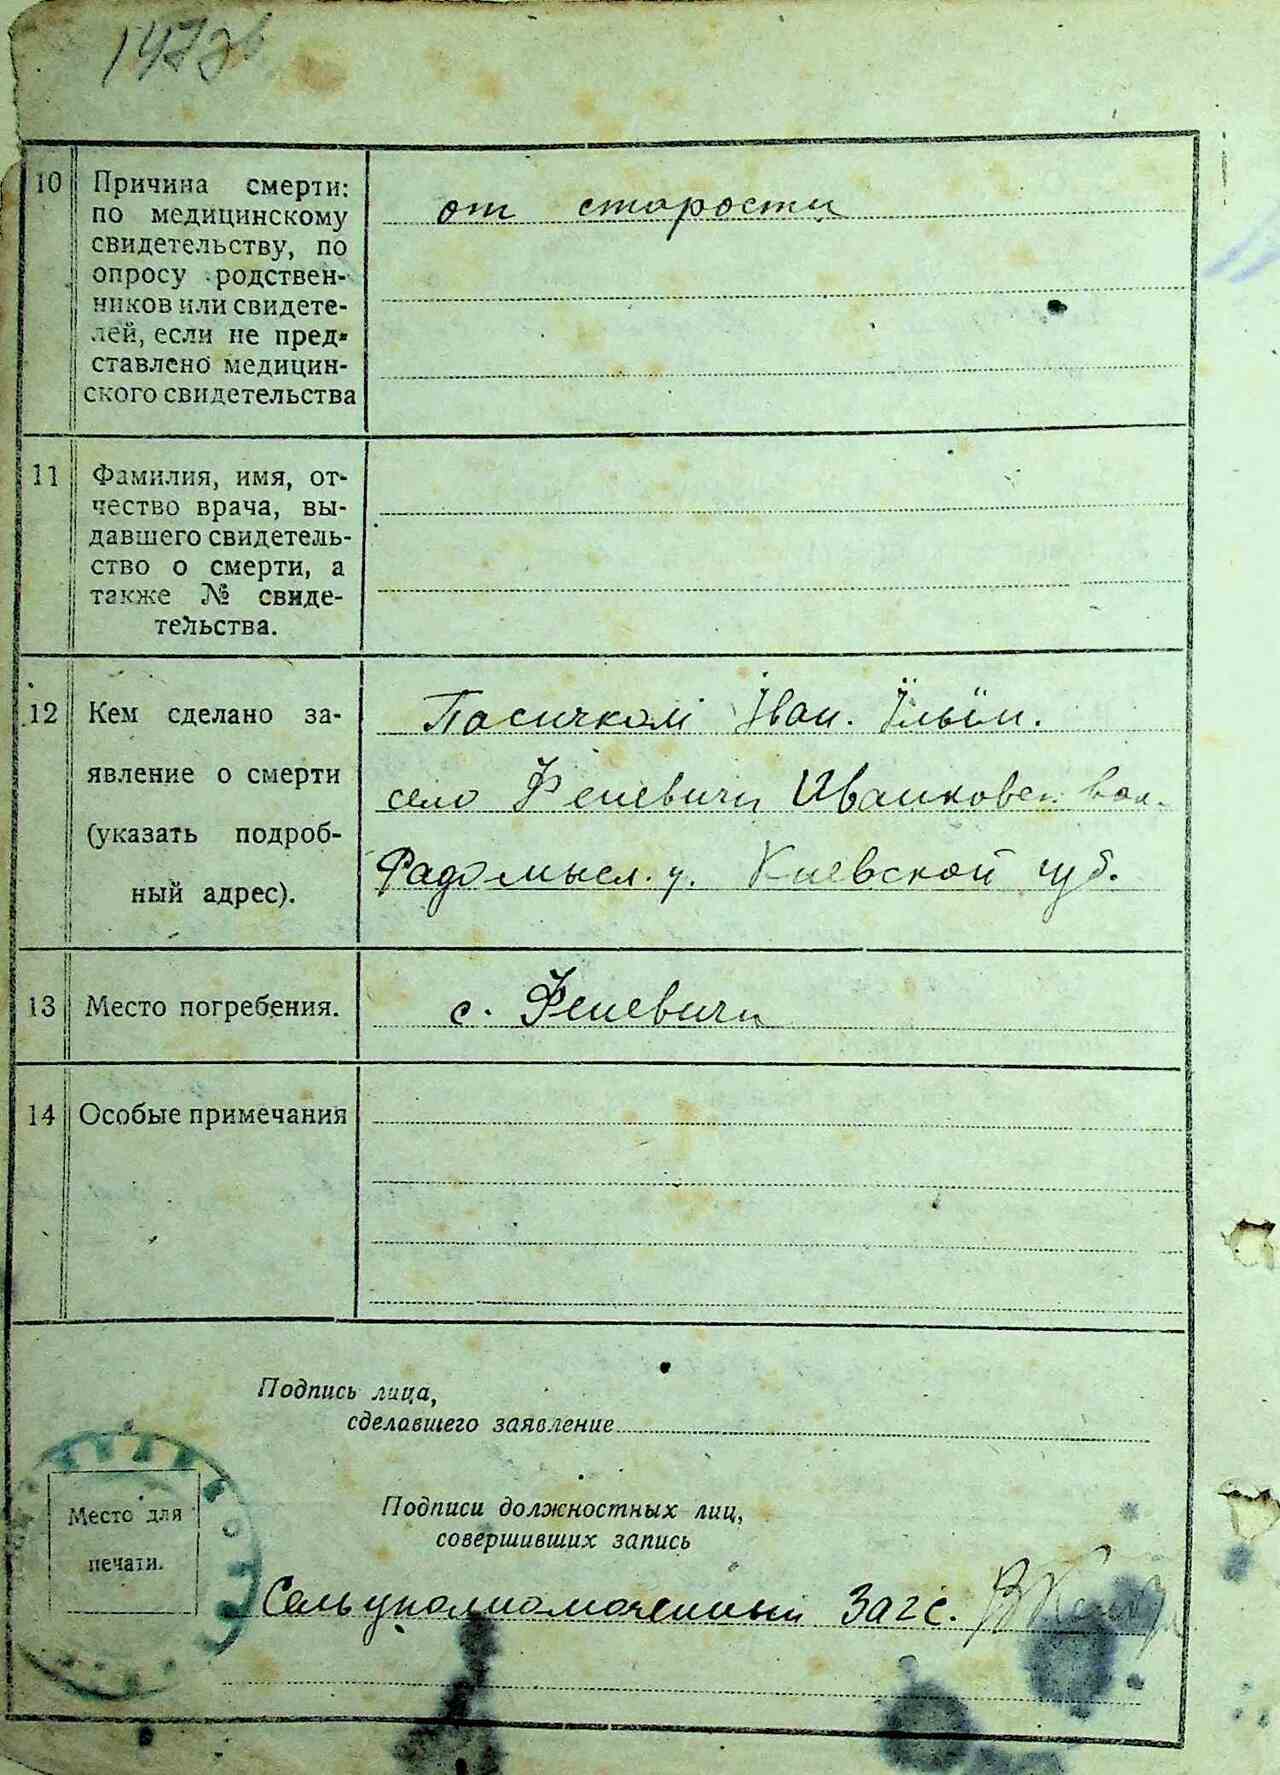 10 Причина смерти:
по медицинскому
свидетельству, по
опросу родствен-
ников или свидете-
лей, если не пред-
ставлено медицин-
ского свидетельства
от старости
11 Фамилия, имя, от-
чество врача, вы-
давшего свидетель-
ство о смерти, а
также № свиде-
тельства.
12 Кем сделано за-
явление о смерти
(указать подроб-
ный адрес).
Пасичкомі Іван. Ільїн.
село Феневичи Иванковск. вол.
Радомысл. у. Киевской губ.
13 Место погребения.
с. Феневичи
14 Особые примечания
Подпись лица,
сделавшего заявление
Подписи должностных лиц,
совершивших запись
Место для
печати.
Сельуполномоченный Загс.